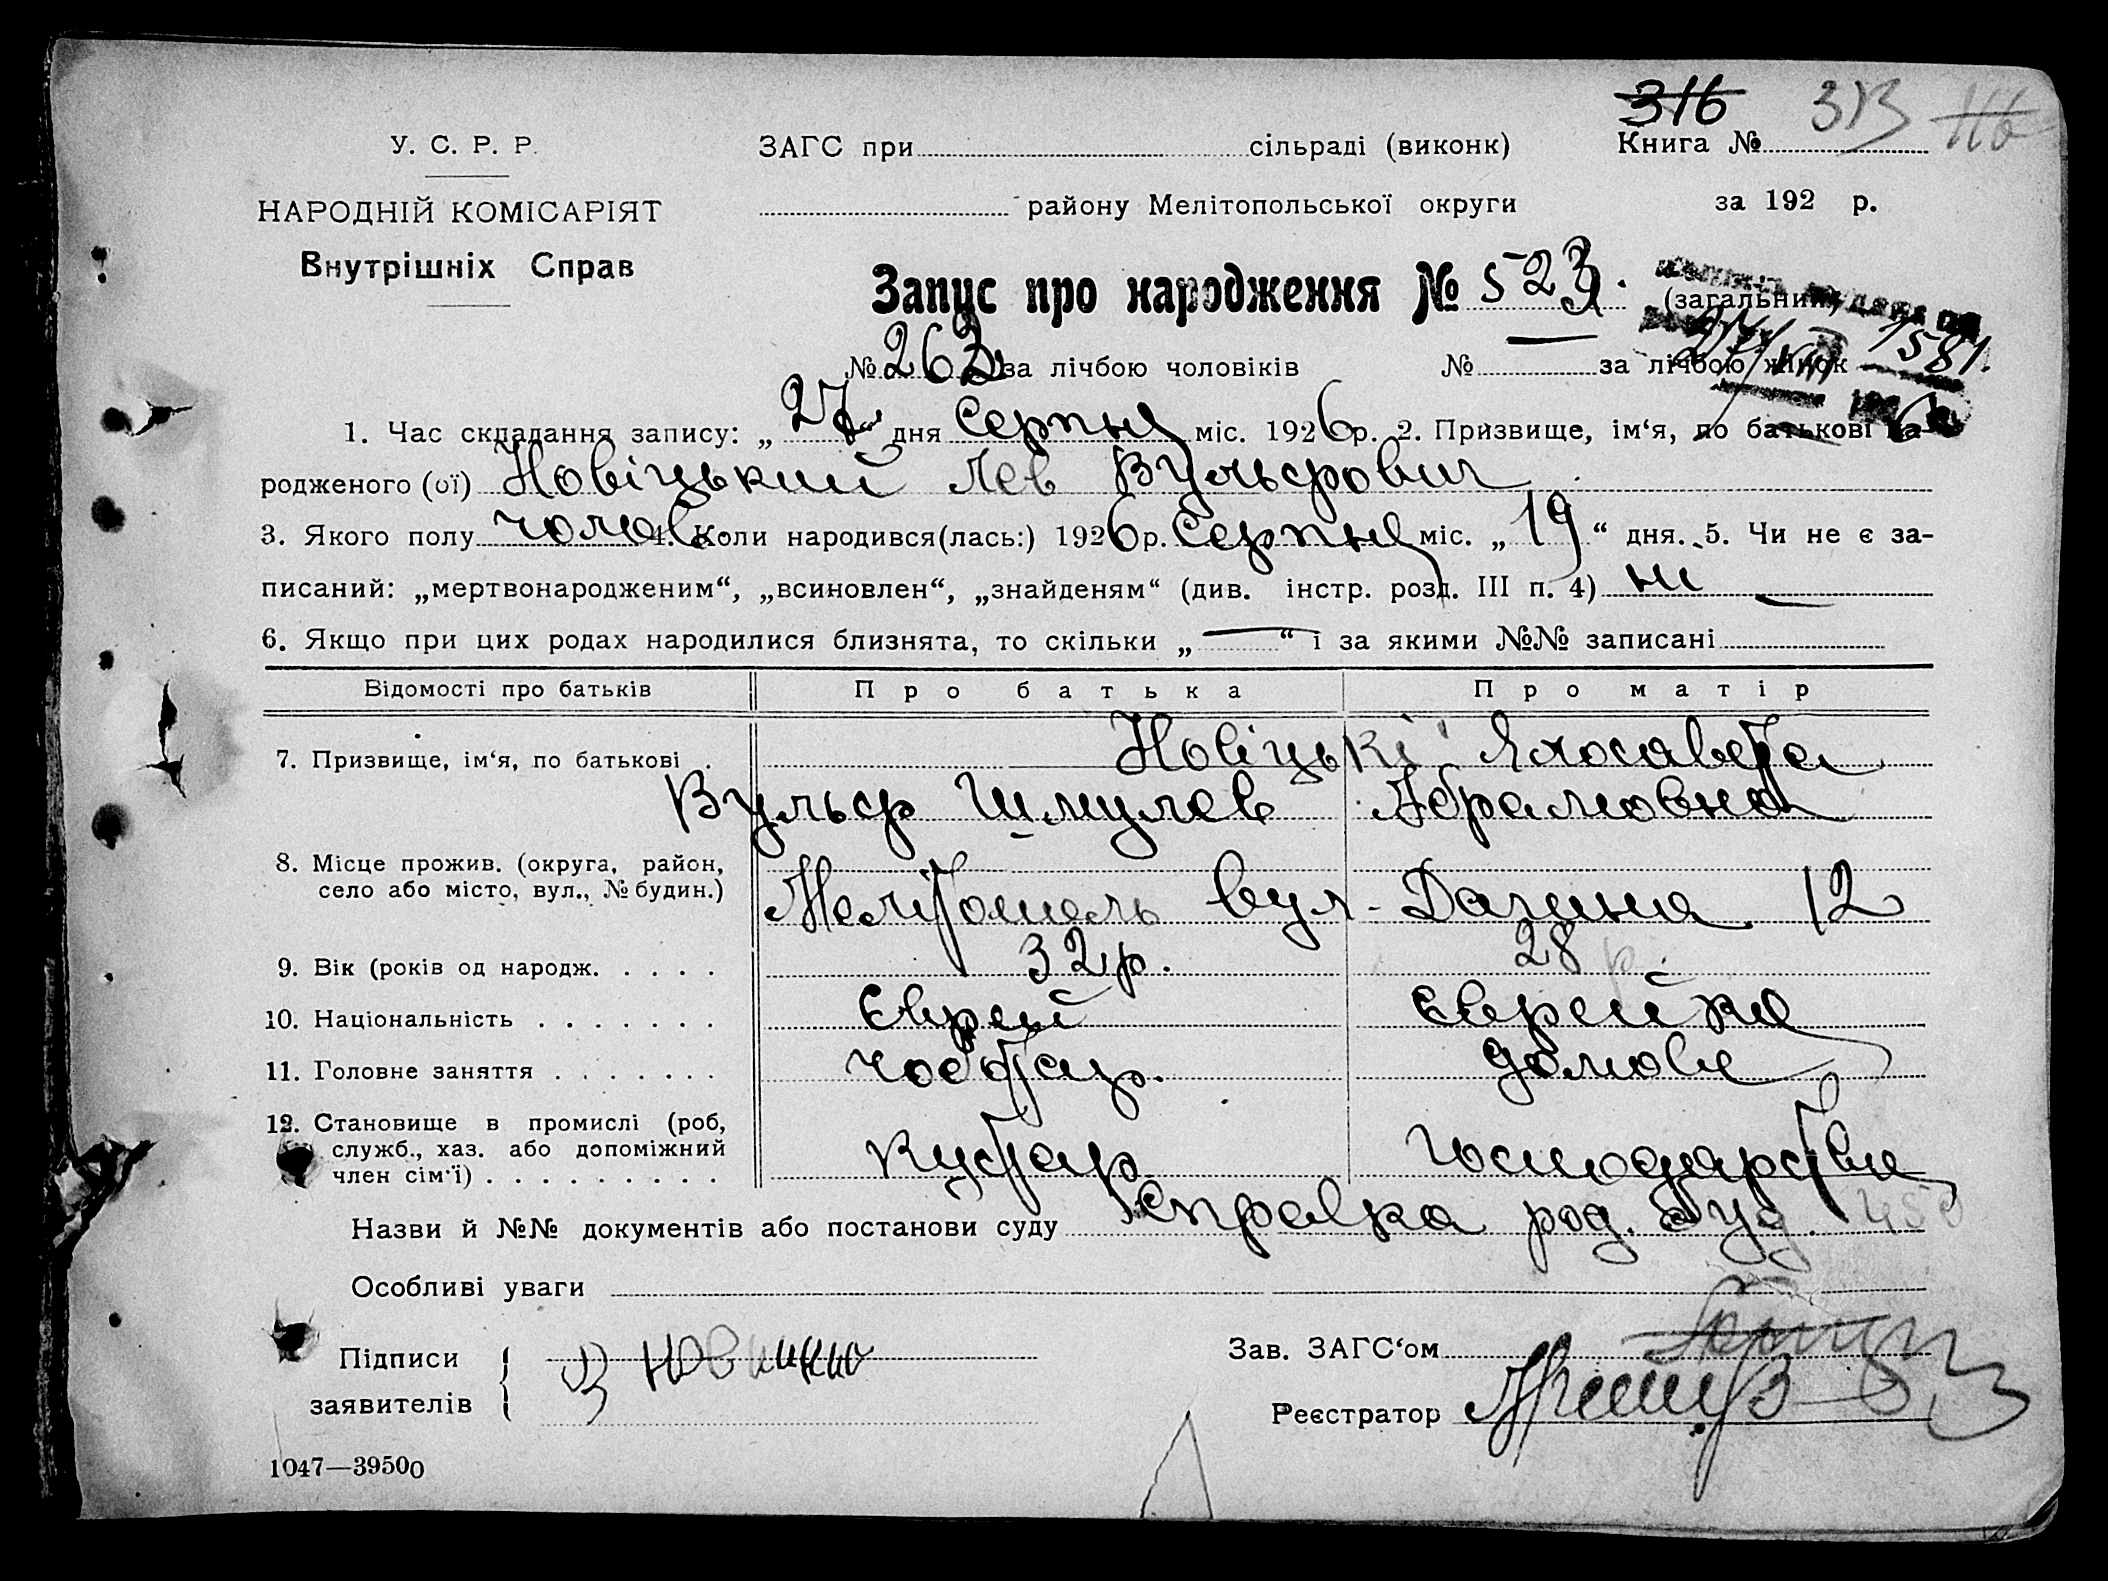 316 313 116
У. С. Р. Р. ЗАГС при сільраді (виконк) Книга №
НАРОДНІЙ КОМІСАРІЯТ району Мелітопольської округи за 192 р.
Внутрішніх Справ
Запис про народження № 523. (загальний)
№ 263 за лічбою чоловіків № — за лічбою жінок 1581.
1. Час складання запису: „27“ дня Серпня міс. 1926 р. 2. Призвище, ім‘я, по батькові на-
родженого (ої) Новіцький Лев Вульфович
3. Якого полу чолов. 4. Коли народився(лась:) 1926 р. Серпня міс. „19“ дня. 5. Чи не є за-
писаний: „мертвонародженим“, „всиновлен“, „знайденям“ (див. інстр. розд. III п. 4) ні —
6. Якщо при цих родах народилися близнята, то скільки „—“ і за якими №№ записані
Відомості про батьків Про батька Про матір
7. Призвище, ім‘я, по батькові . Новіцькі Єлосавета
Вульф Шмулев Абрамовна
8. Місце прожив. (округа, район,
село або місто, вул., № будин.) Мелітополь вул. 12
9. Вік (років од народж. . . . . 32 р. 28 р.
10. Національність . . . . . . . Єврей Єврейка
11. Головне заняття . . . . . . . чоботар. домове
12. Становище в промислі (роб,
служб., хаз. або допоміжний
член сім‘ї) . . . . . . . . . Кустар господарство
Назви й №№ документів або постанови суду справка род. буд. 450
Особливі уваги
Підписи Зав. ЗАГС‘ом
заявителів Реєстратор
1047—39500